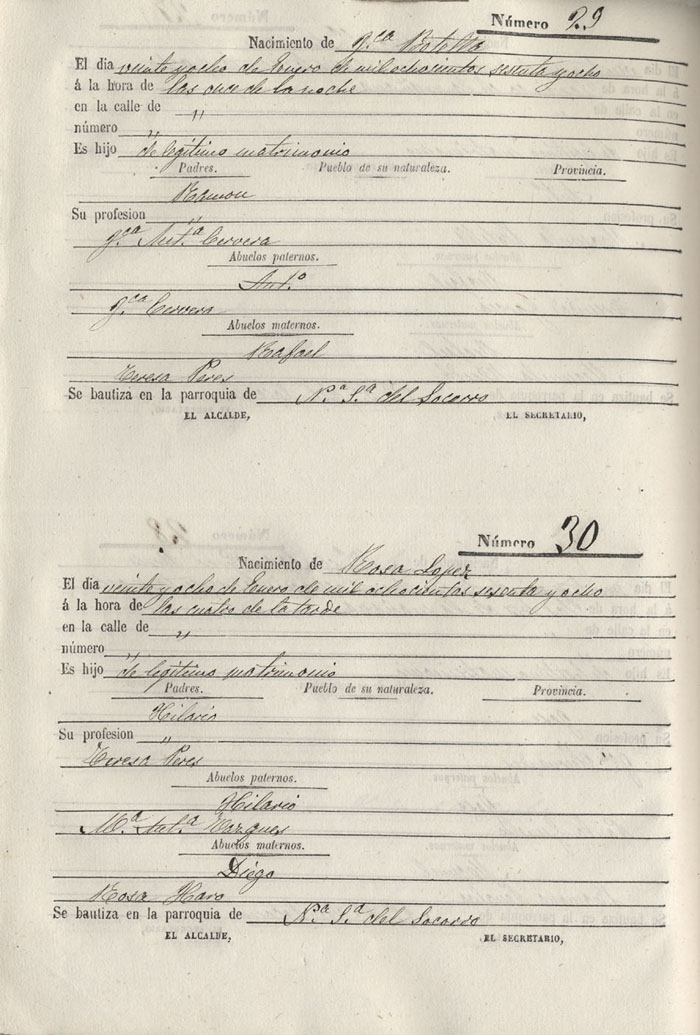 Número 29
Nacimiento de Fca Botella
El dia veinte y ocho de Enero de mil ochocientos sesenta y ocho
á la hora de las once de la noche
en la calle de "
número "
Es hijo de legítimo matrimonio
Padres. Pueblo de su naturaleza. Provincia.
Ramon
Su profesion "
Fca Anta Cervera
Abuelos paternos.
Anto
Fca Cervera
Abuelos maternos.
Rafael
Teresa Peres
Se bautiza en la parroquia de Na Sa del Socorro
EL ALCALDE, EL SECRETARIO,
Número 30
Nacimiento de Rosa Lopez
El dia veinte y ocho de Enero de mil ochocientos sesenta y ocho
á la hora de las cuatro de la tarde
en la calle de "
número "
Es hijo de legítimo matrimonio
Padres. Pueblo de su naturaleza. Provincia.
Hilario
Su profesion "
Teresa Peres
Abuelos paternos.
Hilario
Ma Anta Vazques
Abuelos maternos.
Diégo
Rosa Haro
Se bautiza en la parroquia de Na Sa del Socorro
EL ALCALDE, EL SECRETARIO,